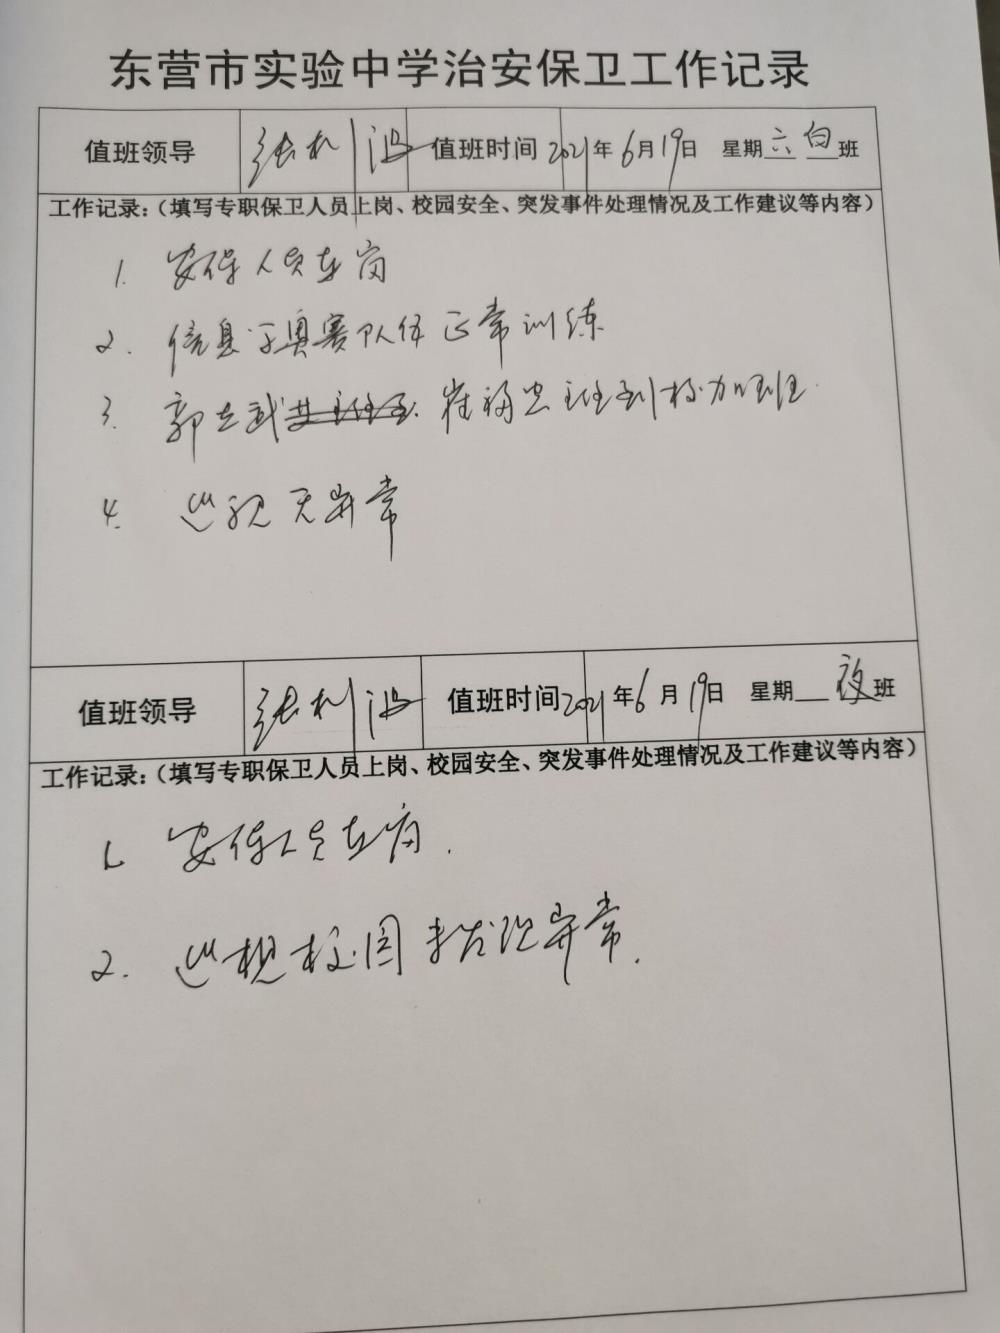 东营市实验中学治安保卫工作记录
值班领导 张利波 值班时间 2021年6月19日 星期六白班
工作记录:(填写专职保卫人员上岗、校园安全、突发事件处理情况及工作建议等内容)
1. 安保人员在岗
2. 信息学奥赛队伍正常训练
3. 郭立武 崔福忠主任到校加班.
4. 巡视无异常
值班领导 张利波 值班时间 2021年6月19日 星期 夜班
工作记录:(填写专职保卫人员上岗、校园安全、突发事件处理情况及工作建议等内容)
1. 安保人员在岗.
2. 巡视校园未发现异常.